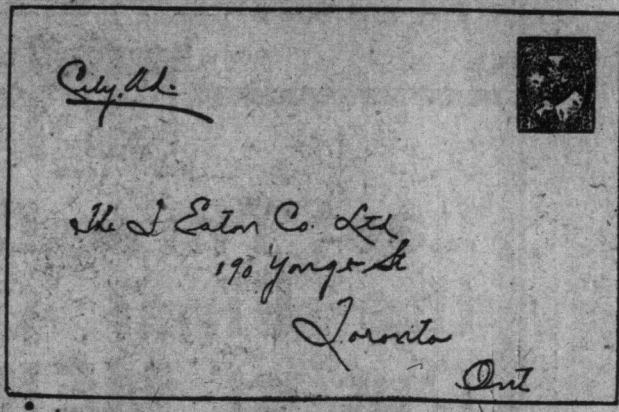 City. Ad.
The T Eaton Co. Ltd
190 Yonge St
Toronto
Ont